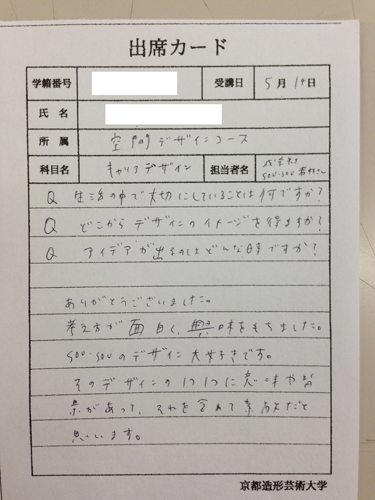 出席カード
学籍番号 受講日 5月14日
氏名
所属 空間デザインコース
科目名 キャリアデザイン 担当者名 SOU・SOU
Q 生活の中で大切にしていることは何ですか?
Q どこからデザインのイメージを得ますか?
Q アイデアが出るのはどんな時ですか?
ありがとうございました。
考え方が面白く、興味をもちました。
SOU・SOUのデザイン大好きです。
そのデザインの1つ1つに意味や背
景があって、それを含めて素敵だと
思います。
京都造形芸術大学